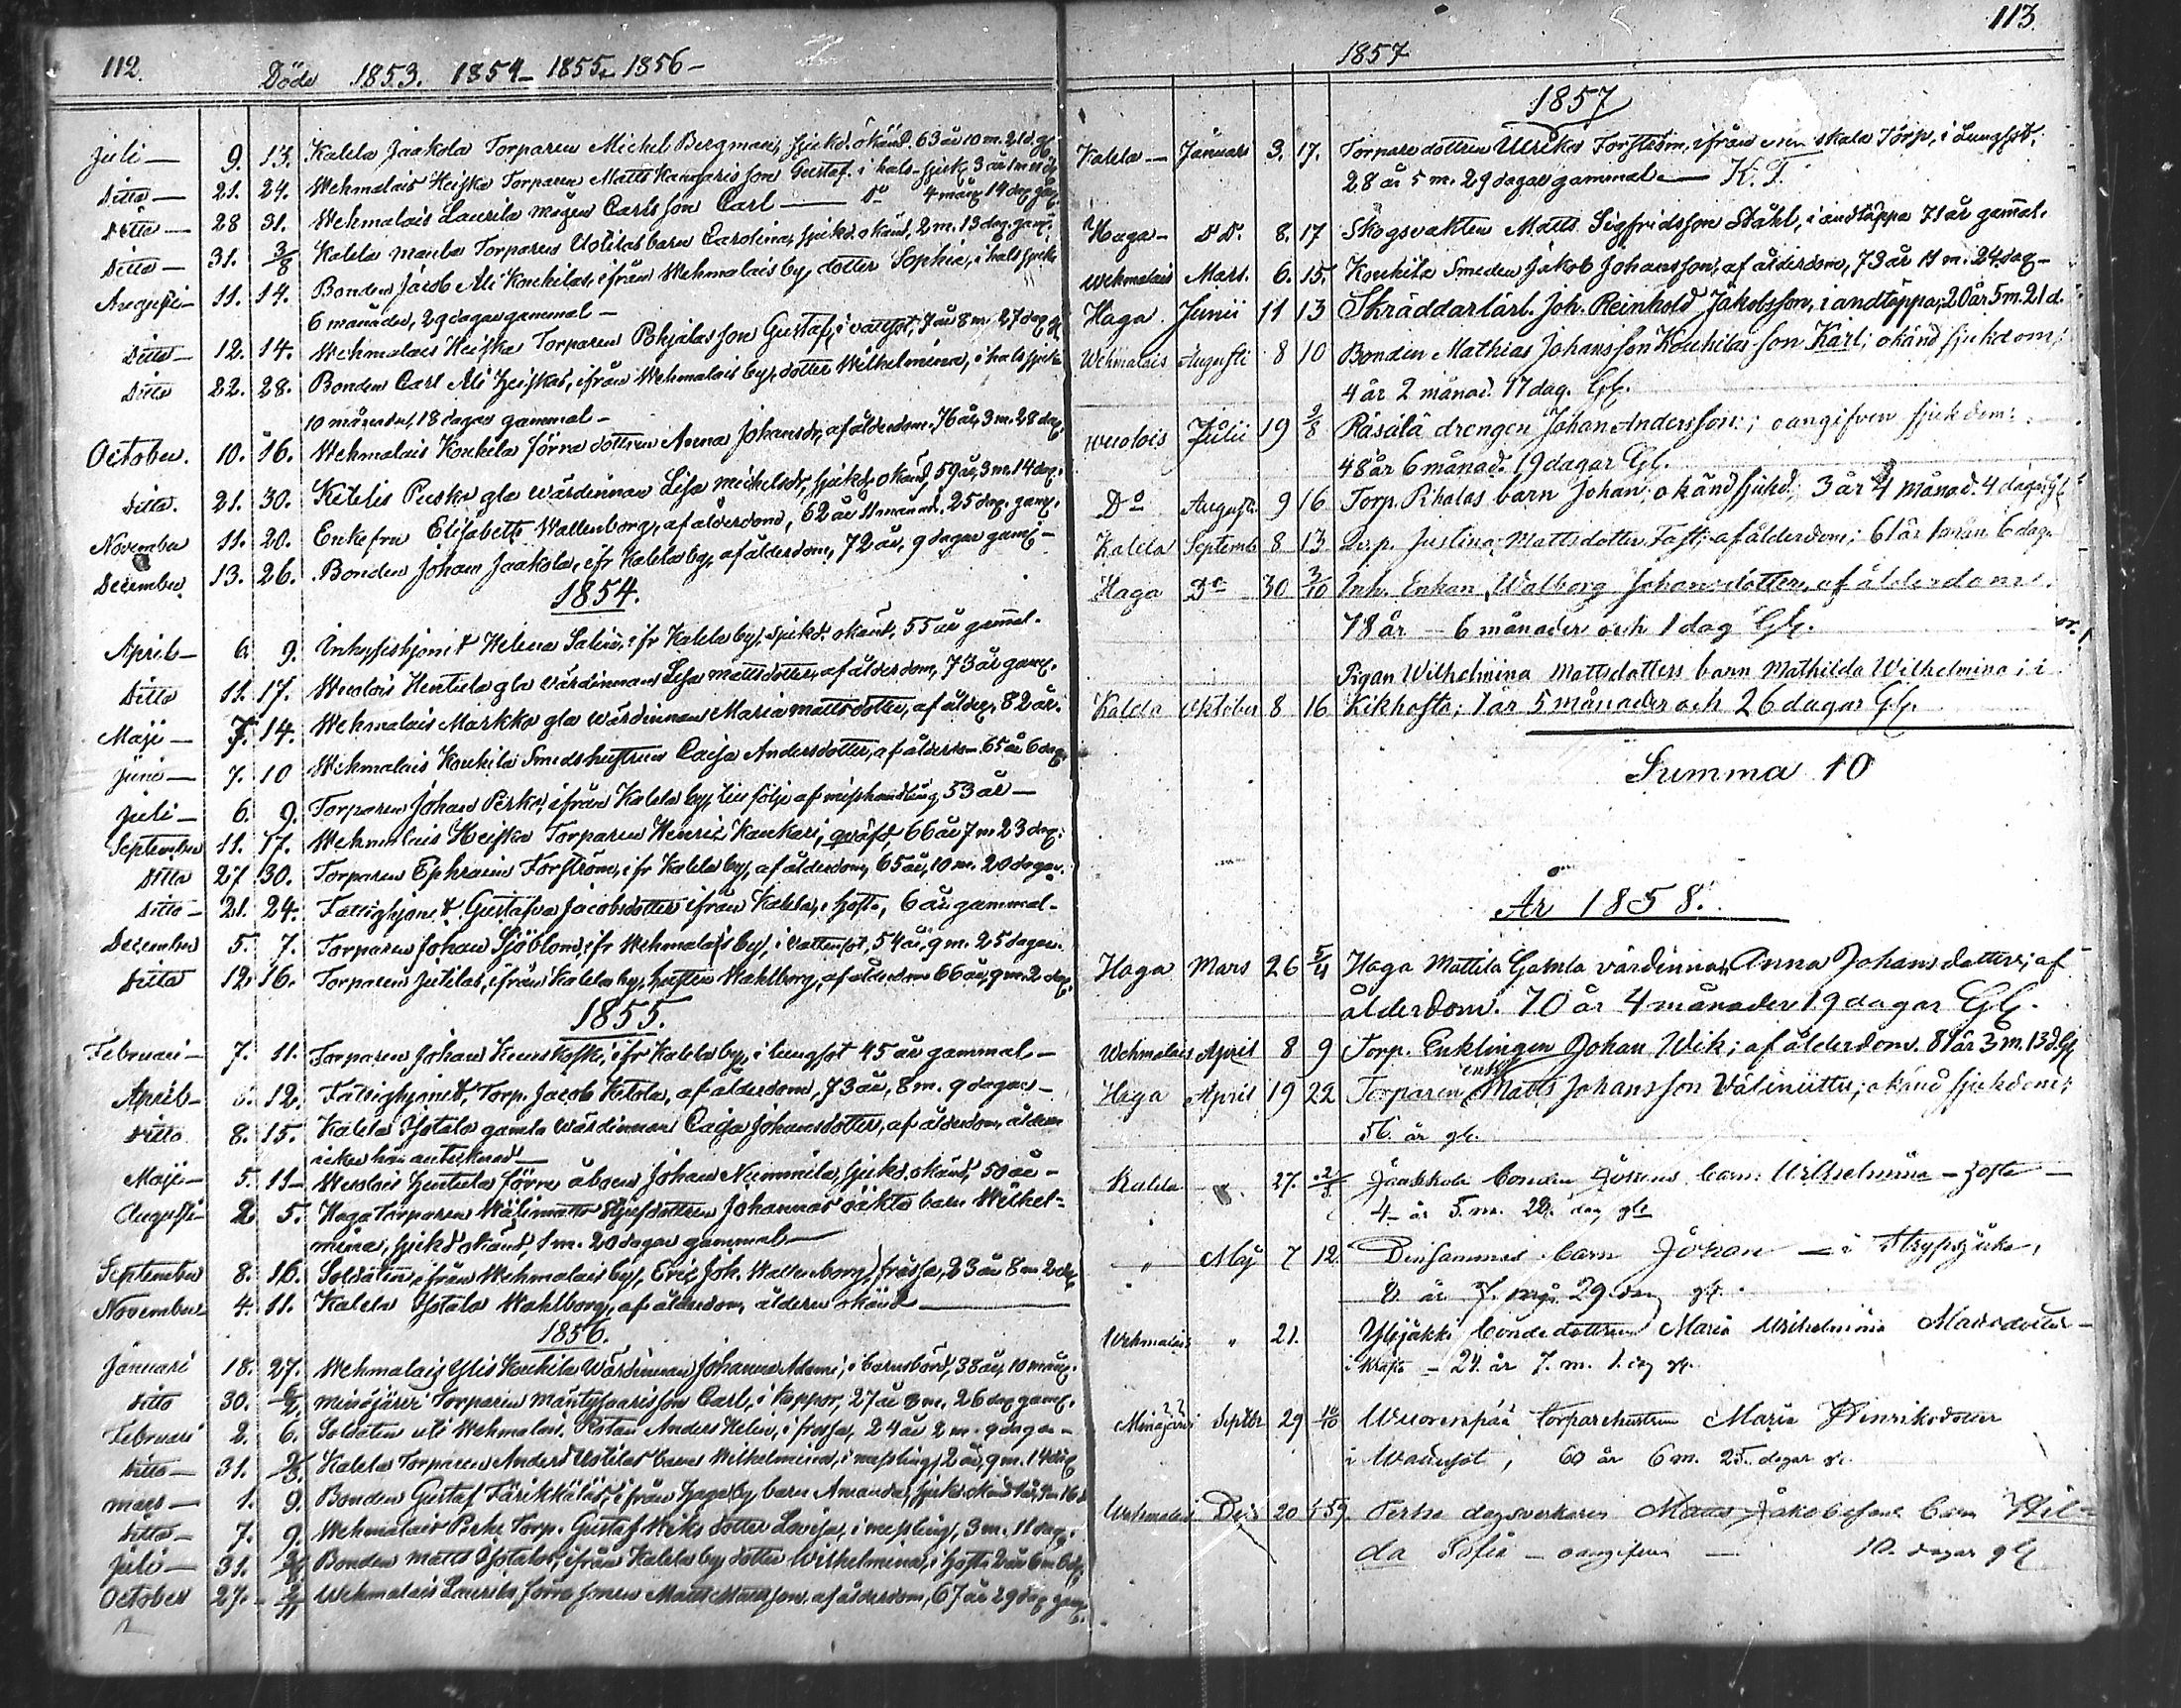 112.
Döde 1853. 1854– 1855– 1856–
Juli — 9. 13. Kalela Jaakola Torparen Michel Bergman, sjukd. okänd. 63 år 10 m. 21 dg.
Ditto — 21. 24. Wehmalais Heiska Torparen Matts Kangaris son Gustaf. i hals-sjuk. 3 år
Ditto — 28 31. Wehmalais Laurila mågen Carls son Carl — Do 4 mån. 14 dag. gam.
Ditto — 31. 3/8 Kalela Torparens Uotilas barn Carolina, sjukd. okänd, 2 m. 13 dag. gam.
Augusti — 11. 14. Bonden Jacob Ali Koukilas, ifrån Wehmalais by, dotter Sophia, i hals sjuka
6 månader, 29 dagar gammal —
Ditto — 12. 14. Wehmalais Heiska Torparen Pohjalas son Gustaf, i vattsot, 7 år 8 m. 27 dag.
Ditto 22. 28. Bonden Carl Ali Heiskas, ifrån Wehmalais by, dotter Wilhelmina, i hals sjuka
10 månader, 18 dagar gammal —
October. 10. 16. Wehmalais Koukila förra dottren Anna Johansdr, af ålderdom. 76 år, 3 m. 28 dag.
Ditto. 21. 30. Puska gla wärdinnan Lisa Michelsdr, sjukd. okänd, 59 år, 3 m. 14 dag.
November 11. 20. Enkefru Elisabeth Wallenborg, af ålderdom, 62 år 11 månad. 25 dag. gam.
December 13. 26. Bonden Johan Jaakola, ifr Kalela by, af ålderdom, 72 år, 9 dagar gam. —
1854.
April — 6. 9. Inhyseshjonet Helena Salin, ifr Kalela by, sjukd. okänd, 55 år gamal.
Ditto 11. 17. Wuolois Hentula gla wärdinnan Lisa Mattsdotter, af ålderdom, 73 år gam.
Maji — 7. 14. Wehmalais Markka gla wärdinnan Maria Mattsdotter, af ålder, 82 år.
Juni — 7. 10 Wehmalais Koukila Smedshustrun Caisa Andersdotter, af ålderdom 65 år 6 dag.
Juli — 6. 9. Torparen Johan Perko, ifrån Kalela by, till följe af misshandling 53 år —
September 11. 17. Wehmalais Heiska Torparen Henric Kankari, qväfd, 66 år 7 m 23 dag.
Ditto 27 30. Torparen Ephraim Forström, ifr Kalela by, af ålderdom, 65 år, 10 m. 20 dagar.
Ditto — 21. 24. Fattighjonet Gustafva Jacobsdotter ifrån Kalela, i hosta, 6 år gammal —
December 5. 7. Torparen Johan Sjöblom, ifr Wehmalais by, i vattensot, 54 år, 9 m. 25 dagar.
Ditto 12. 16. Torparen Jutilas, ifrån Kalela by, hustru Wahlborg, af ålderdom 66 år, 9 m. 2 dag.
1855.
Februari — 7. 11. Torparen Johan ifr Kalela by, i lungsot 45 år gammal —
April — 12. Fattighjonet, Torp. Jacob Ketola, af ålderdom, 73 år, 8 m. 9 dagar —
Ditto 8. 15. Kalela Ylotalo gamla wärdinnan Caisa Johansdotter, af ålderdom, åldern
icke här antecknad —
Maji — 5. 11 — Wuolois Hentula förra åboen Johan Nummila, sjukd. okänd, 50 år —
Augusti — 2. 5. Haga torparen dottren Johannas oäkta barn Wilhel-
mina, sjukd okänd, 1 m. 20 dagar gammal —
September 8. 16. Soldaten ifrån Wehmalais by, Eric Joh. Wallenborg, i frossa, 23 år 8 m 2 dag
November 4. 11. Kalela Ylotalo Wahlborg, af ålderdom, åldern okänd —
1856.
Januari 18. 27. Wehmalais Ylis Koukila Wärdinnan Johanna Adami, i barnsbörd, 38 år, 10 mån.
Ditto 30. Minojärvi Torparen Mäntysaaris son Carl, i koppor, 27 år 8 m. 26 dag gam.
Februari 2. 6. Soldaten uti Wehmalais Rotan Anders Helin, i frossa, 24 år 2 m. 9 dagar —
Ditto — 31. Kalela Torparen Anders Uotilas barn Wilhelmina, i messling, 2 år, 9 m. 14 dag
Mars — 1. 9. Bonden Gustaf Färikkäläs, ifrån Haga by, barn Amanda, sjukd. okänd
Ditto — 7. 9. Wehmalais Perko Torp. Gustaf Wiks dotter Lovisa, i messling, 3 m. 11 dag.
Juli — 31. Bonden Matts Ylotalos, ifrån Kalela by dotter Wilhelmina, i hosta 2 år 6 m 6 dg.
October 27. 2/11 Wehmalais Laurila förra sonen Matts Mattsson, af ålderdom, 67 år 29 dag gam.
113.
1857
1857
Kalela — Januari 3. 17. Torpare dottren Ulrika Forström, ifrån skala Torp, i Lungsot,
28 år 5 m. 29 dagar gammal — K. T.
Haga — Do. 8. 17 Skogsvakten Matts Sigfridsson Ståhl, i andtäppa 71 år gamal.
Wehmalais Mars. 6. 15. Koukila Smeden Jakob Johansson, af ålderdom, 73 år 11 m. 24 dag —
Haga. Junii 11 13 Skräddarlärl. Joh. Reinhold Jakobsson, i andtäppa, 20 år 5 m. 21 d.
Wehmalais Augusti 8 10 Bonden Mathias Johansson Koukilas son Karl; okänd sjukdom;
4 år 2 månad. 17 dag. Gl.
Wuolois Julii 19 2/8 Räsälä drengen Johan Andersson; oangifven sjukdom:
48 år 6 månad. 19 dagar Gl.
Do Augusti 9 16 Torp. Pihalas barn Johan okänd sjukd. 3 år 4 månad. 4 dagar Gl
Kalela Septemb 8 13 Justina Mattsdotter Fast; af ålderdom; 61 år 1 mån 6 dag.
Haga Do 30 3/10 Inh. Enkan Walborg Johansdotter, af ålderdom.
78 år — 6 månader och 1 dag Gl.
Pigan Wilhelmina Mattsdotters barn Mathilda Wilhelmina; i
Kalela Oktober 8 16 Kikhosta; 1 år 5 månader och 26 dagar Gl.
Summa 10
År 1858.
Haga Mars 26 5/4 Haga Mattila Gamla värdinnan Anna Johansdotter; af
ålderdom. 70 år 4 månader 19 dagar Gl.
Wehmalais April 8 9 Torp. Enklingen Johan Wik; af ålderdom. 81 år 3 m. 13 d. Gl
Haga April 19 22 Torparen Matts Johansson Välinittu; okänd sjukdom;
56. år gl.
Kalela 27. Jaakkola bonden barn Wilhelmina — hosta —
4 år 5. m. 28. dag gl
" Maj 7 12. Densammes barn Johan — i Strypsjuka,
8 år 7. mån. 29. dag gl.
Wehmalais " 21. Yljäkki bonde dottren Maria Wilhelmina
— 24. år 7. m. 1. dag gl.
Minojärvi Septbr 29 10/10 Wuorenpää torparehustrun Maria Henriksdotter
i Wattusot, 60 år 6 m. 25. dagar gl.
Wehmalais Dec 20 Perho dagsverkaren Jakobsson barn Hil-
da Sofia — oangifven — 10. dagar gl